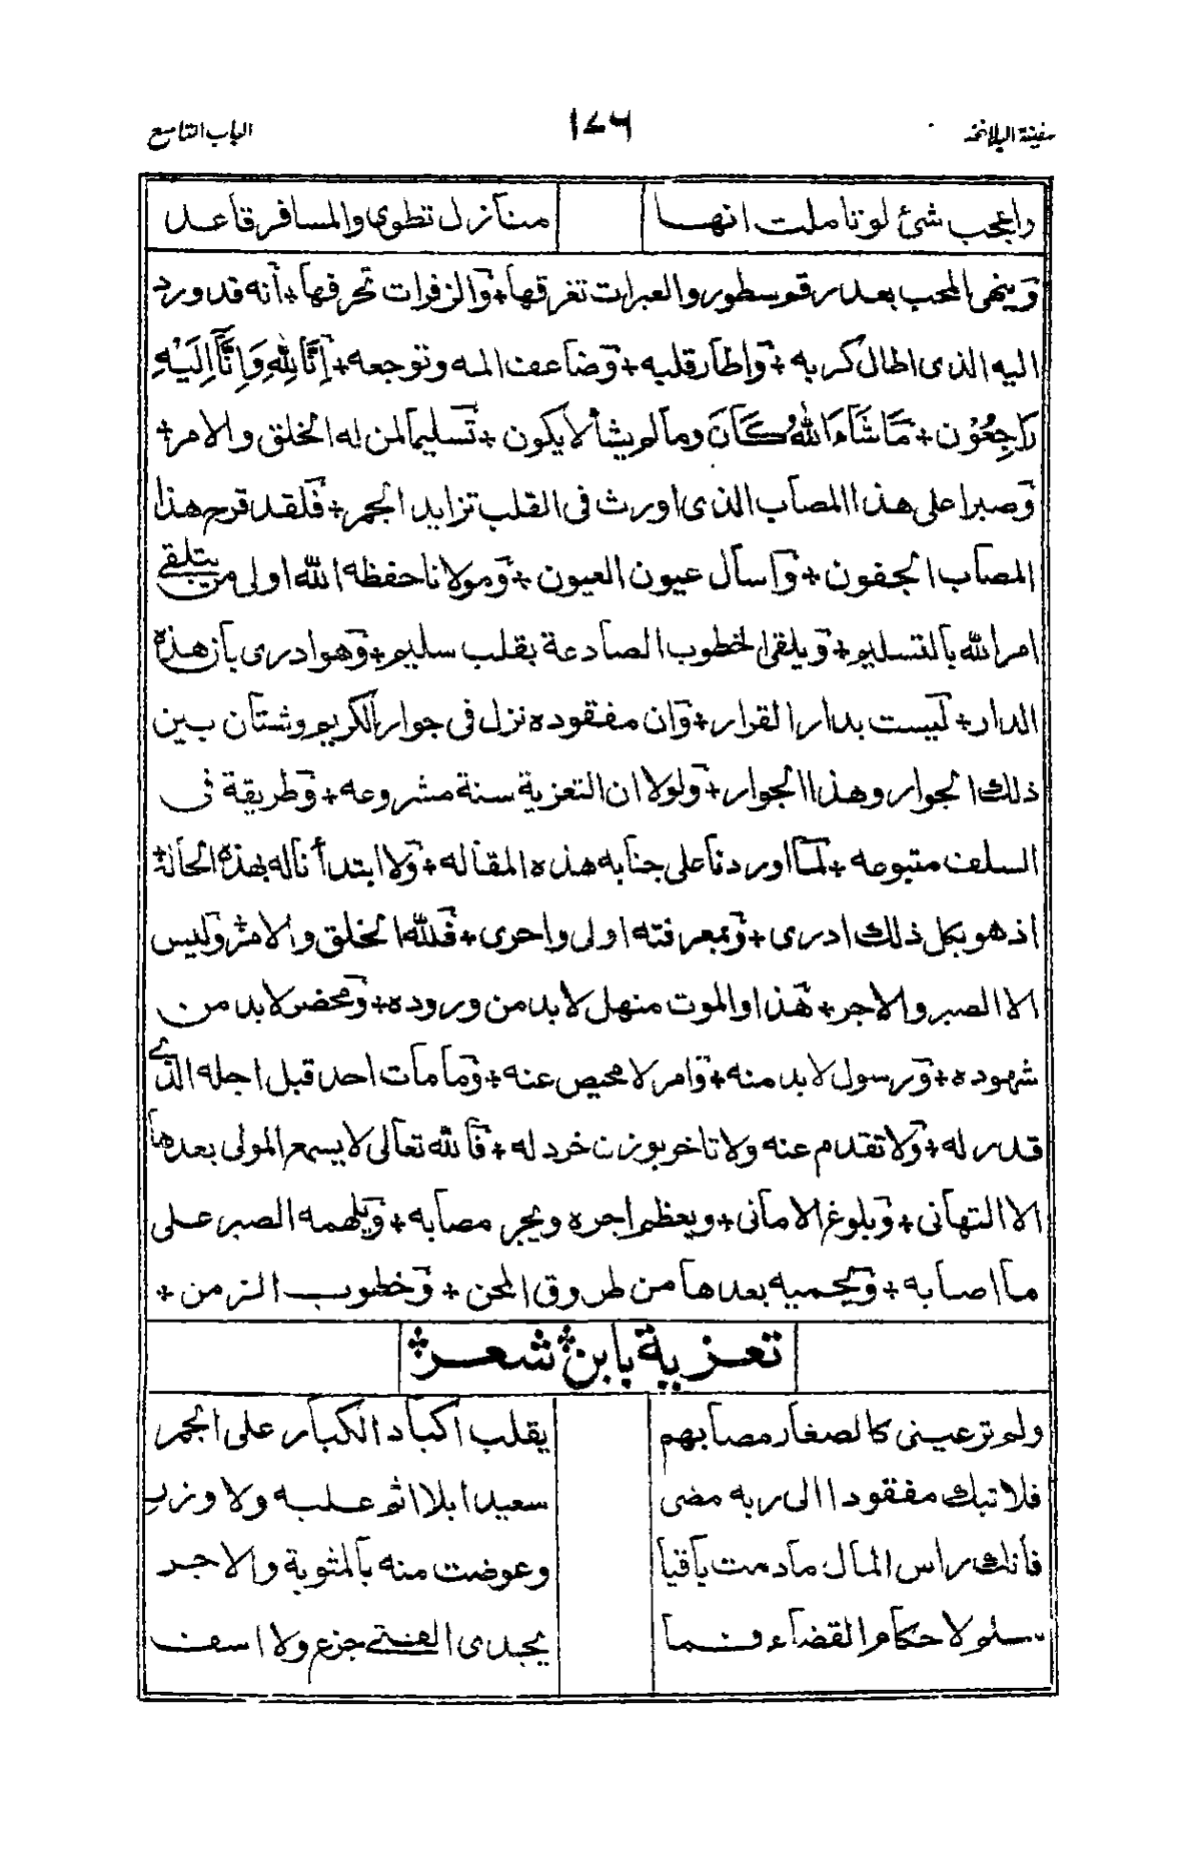 سفينة البلاغة ١٧٦ الباب التاسع
واعجب شئ لو تاملت انها منازل تطوى والمسافر قاعد
وينهى المحب بعد رقم سطور والعبرات تغرقها + والزفرات تحرقها + أنه قد ورد
اليه الذى اطال كربه + واطار قلبه + وضاعف المه وتوجعه + اِنَّا لِلّٰهِ وَاِنَّا اِلَيْهِ
رَاجِعُوْن + مَا شَاءَ اللهُ كَانَ وما لم يشأ لا يكون + تسليما لمن له الخلق والامر +
وصبرا على هذا المصاب الذى اورث فى القلب تزايد الجمر + فلقد قرح هذا
المصاب الجفون + واسال عيون العيون + ومولانا حفظه الله اولى من يتلقى
امر الله بالتسليم + ويلقى الخطوب الصادعة بقلب سليم + وهو ادرى بان هذه
الدار + ليست بدار القرار + وان مفقوده نزل فى جوار الكريم وشتان بين
ذلك الجوار وهذا الجوار + ولولا ان التعزية سنة مشروعه + وطريقة فى
السلف متبوعه + لما اوردنا على جنابه هذه المقاله + ولا ابتدأناله بهذه الحالة +
اذ هو بكل ذلك ادرى + وبمعرفته اولى واحرى + فلله الخلق والامر + وليس
الا الصبر والاجر + هذا والموت منهل لا بد من وروده + ومحضر لا بد من
شهوده + ورسول لا بد منه + وامر لا محيص عنه + وما مات احد قبل اجله الذى
قدر له + ولا تقدم عنه ولا تاخر بوزن خردله + فالله تعالى لا يسمع المولى بعدها
الا التهانى + وبلوغ الامانى + ويعظم اجره ويجبر مصابه + ويلهمه الصبر على
ما اصابه + ويحميه بعدها من طروق المحن + وخطوب الزمن +
تعزية بابن شعر
ولم تر عينى كالصغار مصابهم يقلب اكباد الكبار على الجمر
فلا تبك مفقودا الى ربه مضى سعيدا بلا اثم عليه ولا وزر
فانك راس المال ما دمت باقيا وعوضت منه بالمثوبة والاجر
سلم لاحكام القضاء فما يجدى الفتى جزع ولا اسف